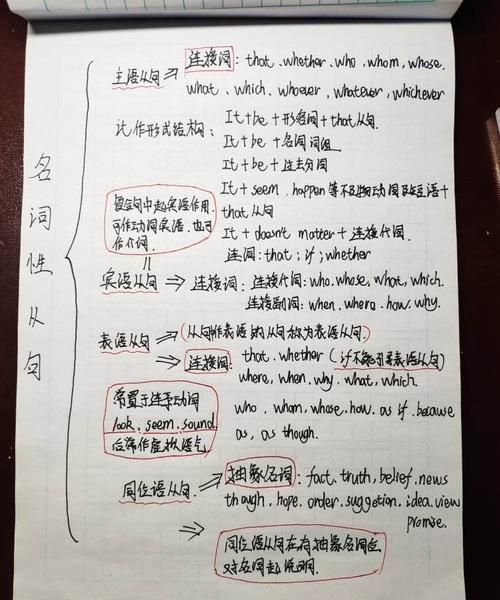 名词性从句
主语从句 ⇒ 连接词: that、whether、who、whom、whose.
what、which、whoever、whatever、whichever
it作形式结构: It+be+形容词+that从句.
It+be+名词词组
It+be+过去分词
It+seem、happen等不及物动词及短语+
that从句
It+doesn't matter+连接代词.
连词: that; if; whether
复合句中起宾语作用.
可作动词宾语.也可
作介词.
宾语从句 ⇒ 连接词: 连接代词: who、whose、what、which.
连接副词: when、where、how、why.
表语从句 ⇒ (从句作表语的从句称为表语从句.)
⇒ 连接词: that、whether (if不能引导表语从句)
where、when、why、what、which
who、whom、whose、how、as if、because
as、as though.
常置于连系动词
look、seem、sound
后常作虚拟语气
同位语从句 ⇒ 抽象名词: fact、truth、belief、news
though、hope、order、suggetion、idea、view
promise.
⇒ 同位语从句在有抽象名词位
对名词起说明.